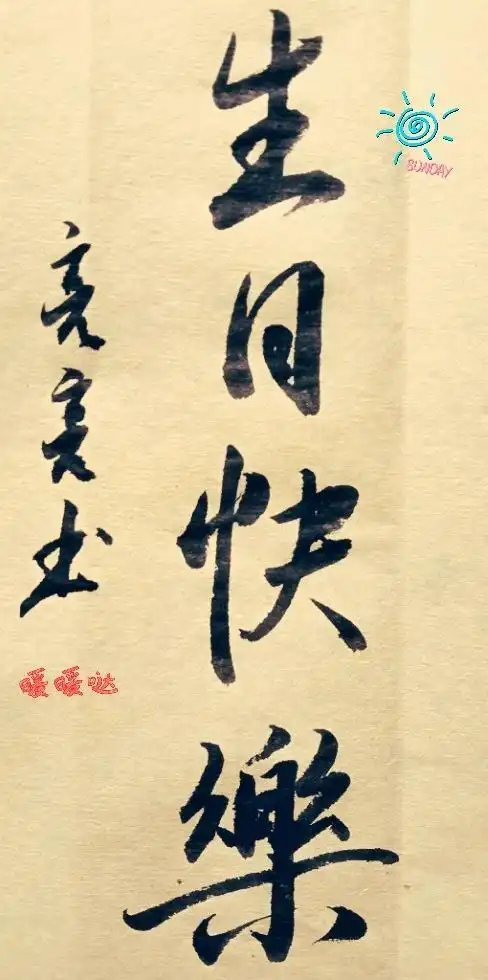 生日快樂
亮亮书
暖暖哒
SUNDAY